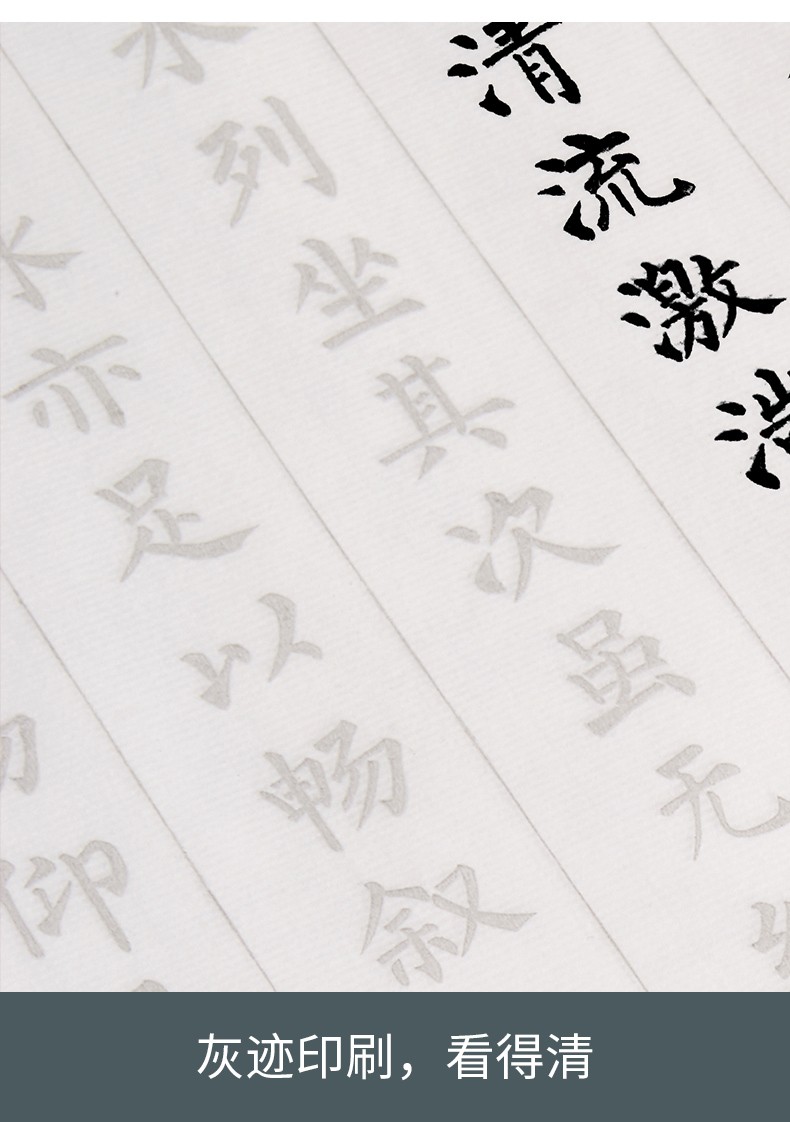 清流激
水列坐其次虽无
亦足以畅叙
仰
灰迹印刷，看得清